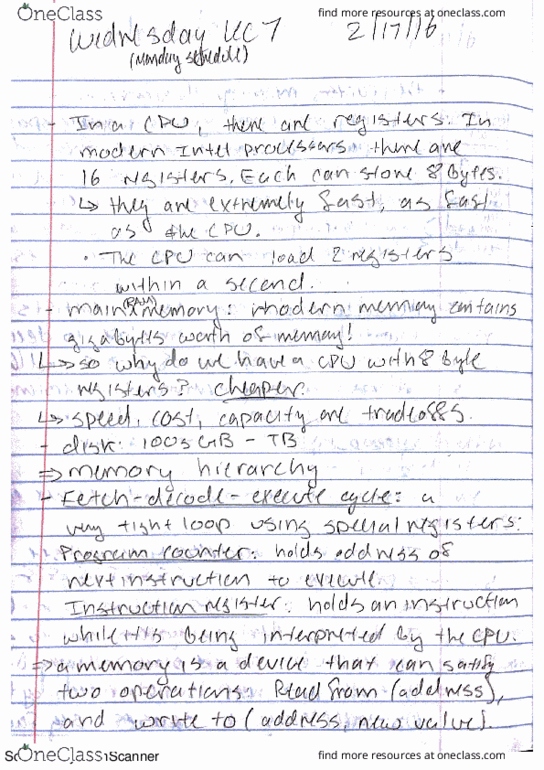 OneClass
find more resources at oneclass.com
find more resources at oneclass.com
Wednesday LEC 7 2/17/16
(Monday schedule)
- In a CPU, there are registers. In
modern Intel processors there are
16 registers. Each can store 8 bytes.
↳ they are extremely fast, as fast
as the CPU.
· The CPU can load 2 registers
within a second.
- main (RAM) memory: modern memory contains
gigabytes worth of memory!
↳ so why do we have a CPU with 8 byte
registers? cheaper.
↳ speed, cost, capacity are tradeoffs.
- disk: 100s GB - TB
⇒ memory hierarchy
- Fetch-decode-execute cycle: a
very tight loop using special registers:
Program counter: holds address of
next instruction to execute
Instruction register: holds an instruction
while it's being interpreted by the CPU.
⇒ a memory is a device that can satisfy
two operations: Read from (address),
and write to (address, new value).
OneClass
Scanner
find more resources at oneclass.com
find more resources at oneclass.com